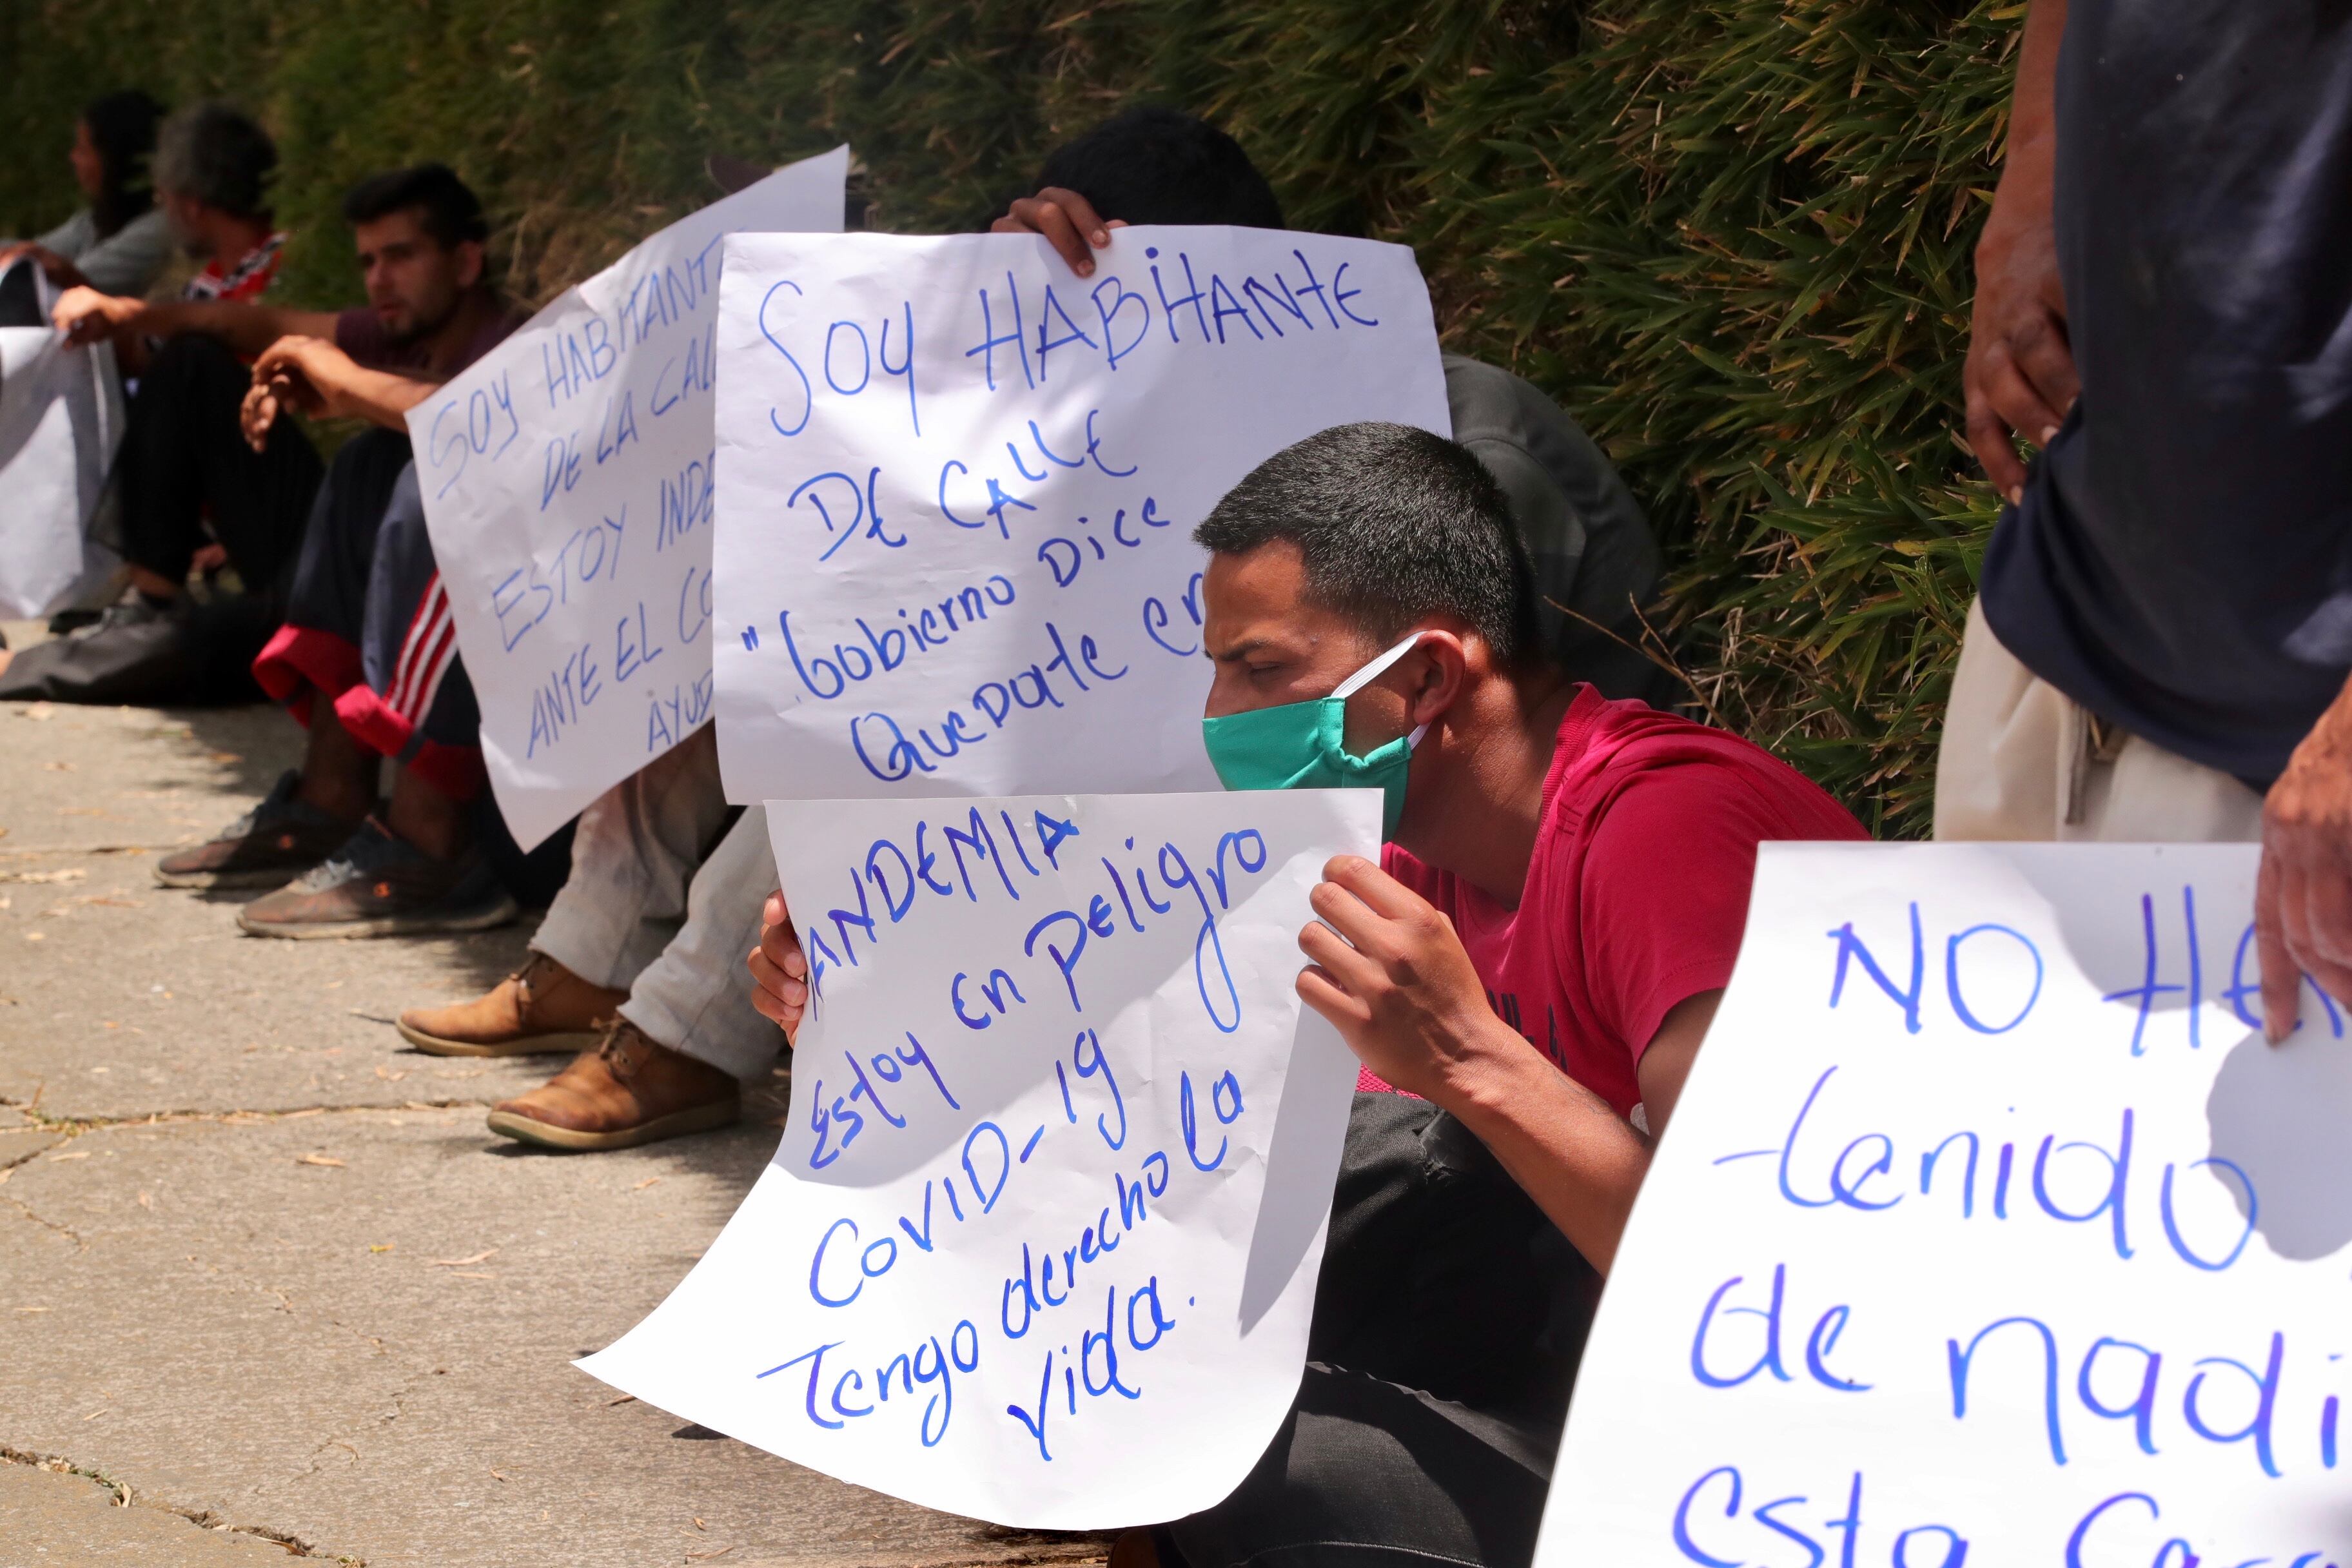 SOY HABITANT
DE LA CALL
ESTOY INDE
ANTE EL CO
AYUD
SOY HABITANTE
DE CALLE
"Gobierno Dice
Quedate en
ANDEMIA
Estoy en Peligro
COVID-19
Tengo derecho la
vida.
NO HE
tenido
de nadi
esta ca